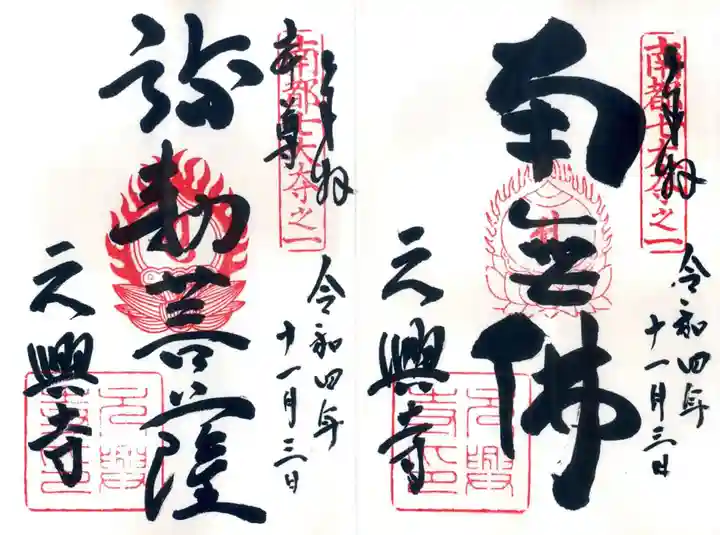 奉拝
南都七大寺之一
令和四年
十一月三日
南無佛
元興寺
奉拝
南都七大寺之一
令和四年
十一月三日
本尊
弥勒菩薩
元興寺